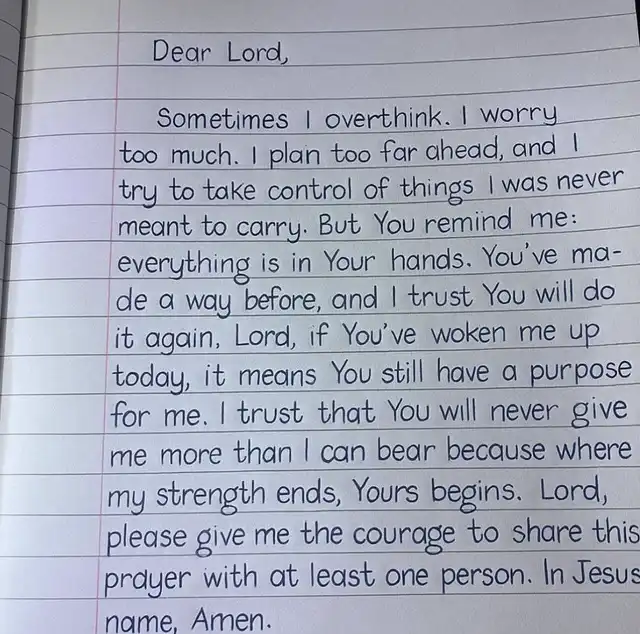 Dear Lord,
Sometimes I overthink. I worry
too much. I plan too far ahead, and I
try to take control of things I was never
meant to carry. But You remind me:
everything is in Your hands. You've ma-
de a way before, and I trust You will do
it again, Lord, if You've woken me up
today, it means You still have a purpose
for me. I trust that You will never give
me more than I can bear because where
my strength ends, Yours begins. Lord,
please give me the courage to share this
prayer with at least one person. In Jesus
name, Amen.